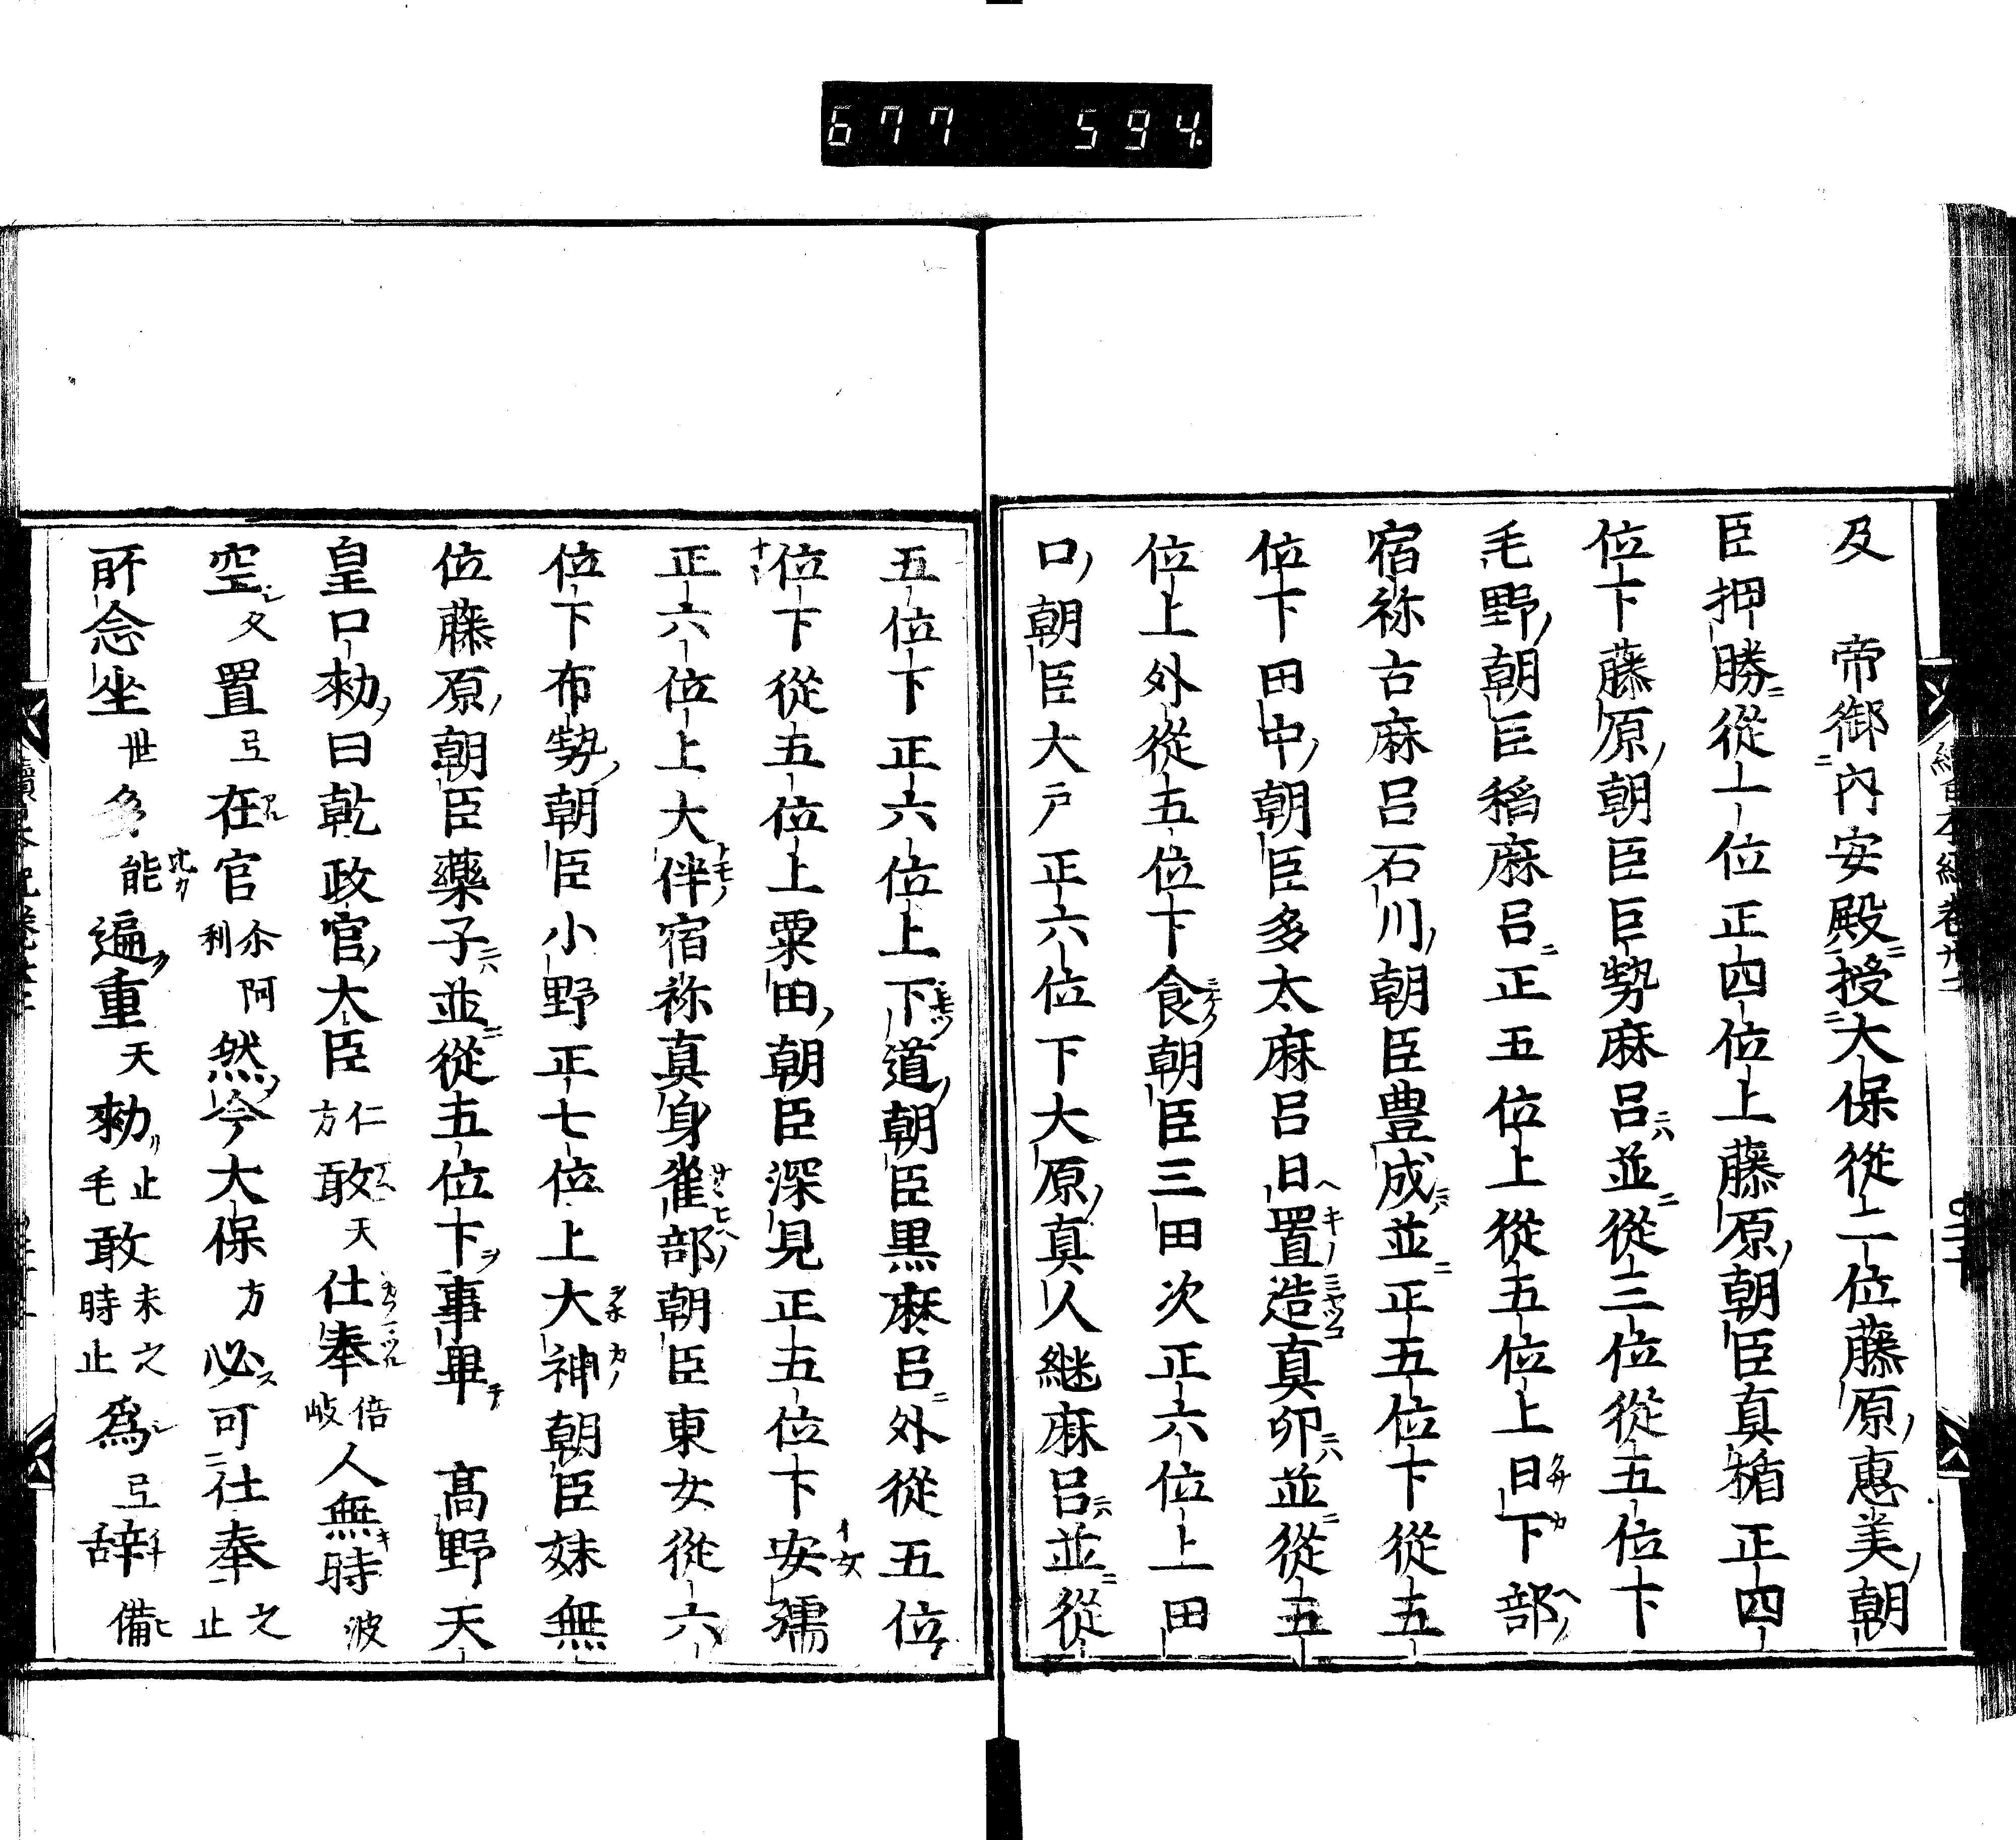 677 594
及 帝御內安殿授大保從二位藤原惠美朝
臣押勝從上位正四位上藤原朝臣真楯正四
位下藤原朝臣巨勢麻呂並從三位從五位下
毛野朝臣稻麻呂正五位上從五位上日下部
宿祢古麻呂石川朝臣豊成並正五位下從五
位下田中朝臣多太麻呂日置造真卯並從五
位上外從五位下食朝臣三田次正六位上田
口朝臣大戸正六位下大原真人継麻呂並從
五位下正六位上下道朝臣黒麻呂外從五位
位下從五位上粟田朝臣深見正五位下安孺
正六位上大伴宿祢真身雀部朝臣東女從六
位下布勢朝臣小野正七位上大神朝臣妹無
位藤原朝臣藥子並從五位下事畢 高野天
皇口勑曰乾政官大臣仁方敢天仕奉倍岐人無時波
空之久置弖在官尒阿利然今大保方必可仕奉之止
所念坐世多能遍重天勑止毛敢未之時止為弖辞備